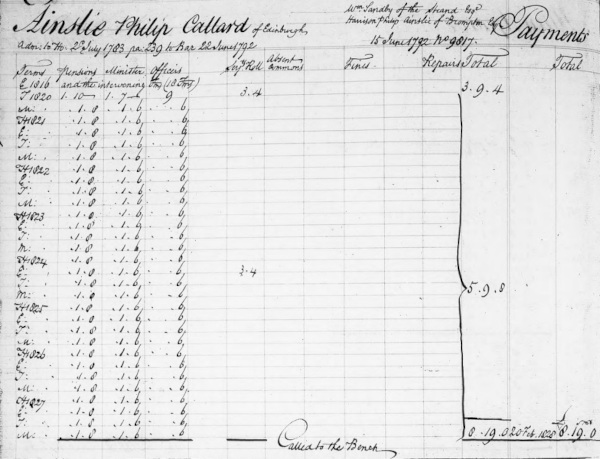 Ainslie Philip Callard of Edinburgh, Payments
Wm. Sandby of the Strand Esqr.
Harrison Philip Ainslie of Brompton Esq
adm: to Ho: 2d July 1783 pa: 239 to Bar 22 June 1792
15 June 1792 No 9817.
Terms Pensions Minister Officers Absent Commons Fines Repairs Total Total
E 1816 and the intervening 3. 9. 4
T 1820 1. 10 1. 7 9 3. 4
M: .1.8 .1.6 6
H 1821 .1.8 .1.6 6
E: .1.8 .1.6 6
T: .1.8 .1.6 6
M: .1.8 .1.6 6
H 1822 .1.8 .1.6 6
E: .1.8 .1.6 6
T: .1.8 .1.6 6
M: .1.8 .1.6 6
H 1823 .1.8 .1.6 6
E: .1.8 .1.6 6
T: .1.8 .1.6 6
M: .1.8 .1.6 6
H 1824 .1.8 .1.6 6
E: .1.8 .1.6 6 3. 4
T: .1.8 .1.6 6
M: .1.8 .1.6 6 5. 9. 8
H 1825 .1.8 .1.6 6
E: .1.8 .1.6 6
T: .1.8 .1.6 6
M: .1.8 .1.6 6
H 1826 .1.8 .1.6 6
E: .1.8 .1.6 6
T: .1.8 .1.6 6
M: .1.8 .1.6 6
H 1827 .1.8 .1.6 6
E: .1.8 .1.6 6
T: .1.8 .1.6 6
M: .1.8 .1.6 6 8. 19. 0 20 Feb. 1828 8. 19. 0
Called to the Bench